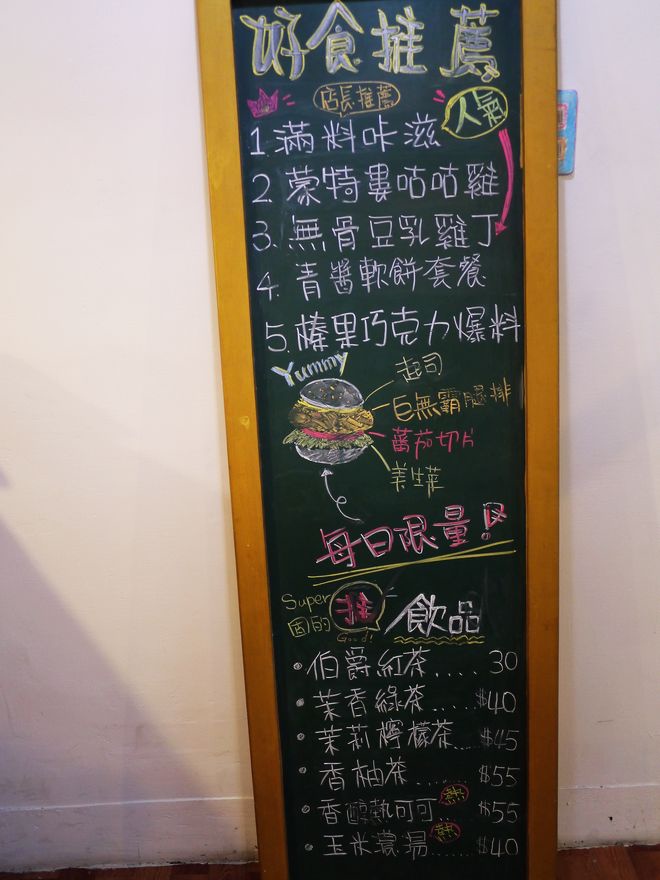 好食推薦
店長推薦
人氣
1 滿料咔滋
2. 蒙特婁咕咕雞
3. 無骨豆乳雞丁
4. 青醬軟餅套餐
5. 榛果巧克力爆料
Yummy
起司
巨無霸腿排
蕃茄切片
美生菜
每日限量!
Super
推
Good!
飲品
伯爵紅茶..... 30
茉香綠茶..... $40
茉莉檸檬茶... $45
香柚茶....... $55
香醇熱可可... 熱 $55
玉米濃湯...... 熱 $40